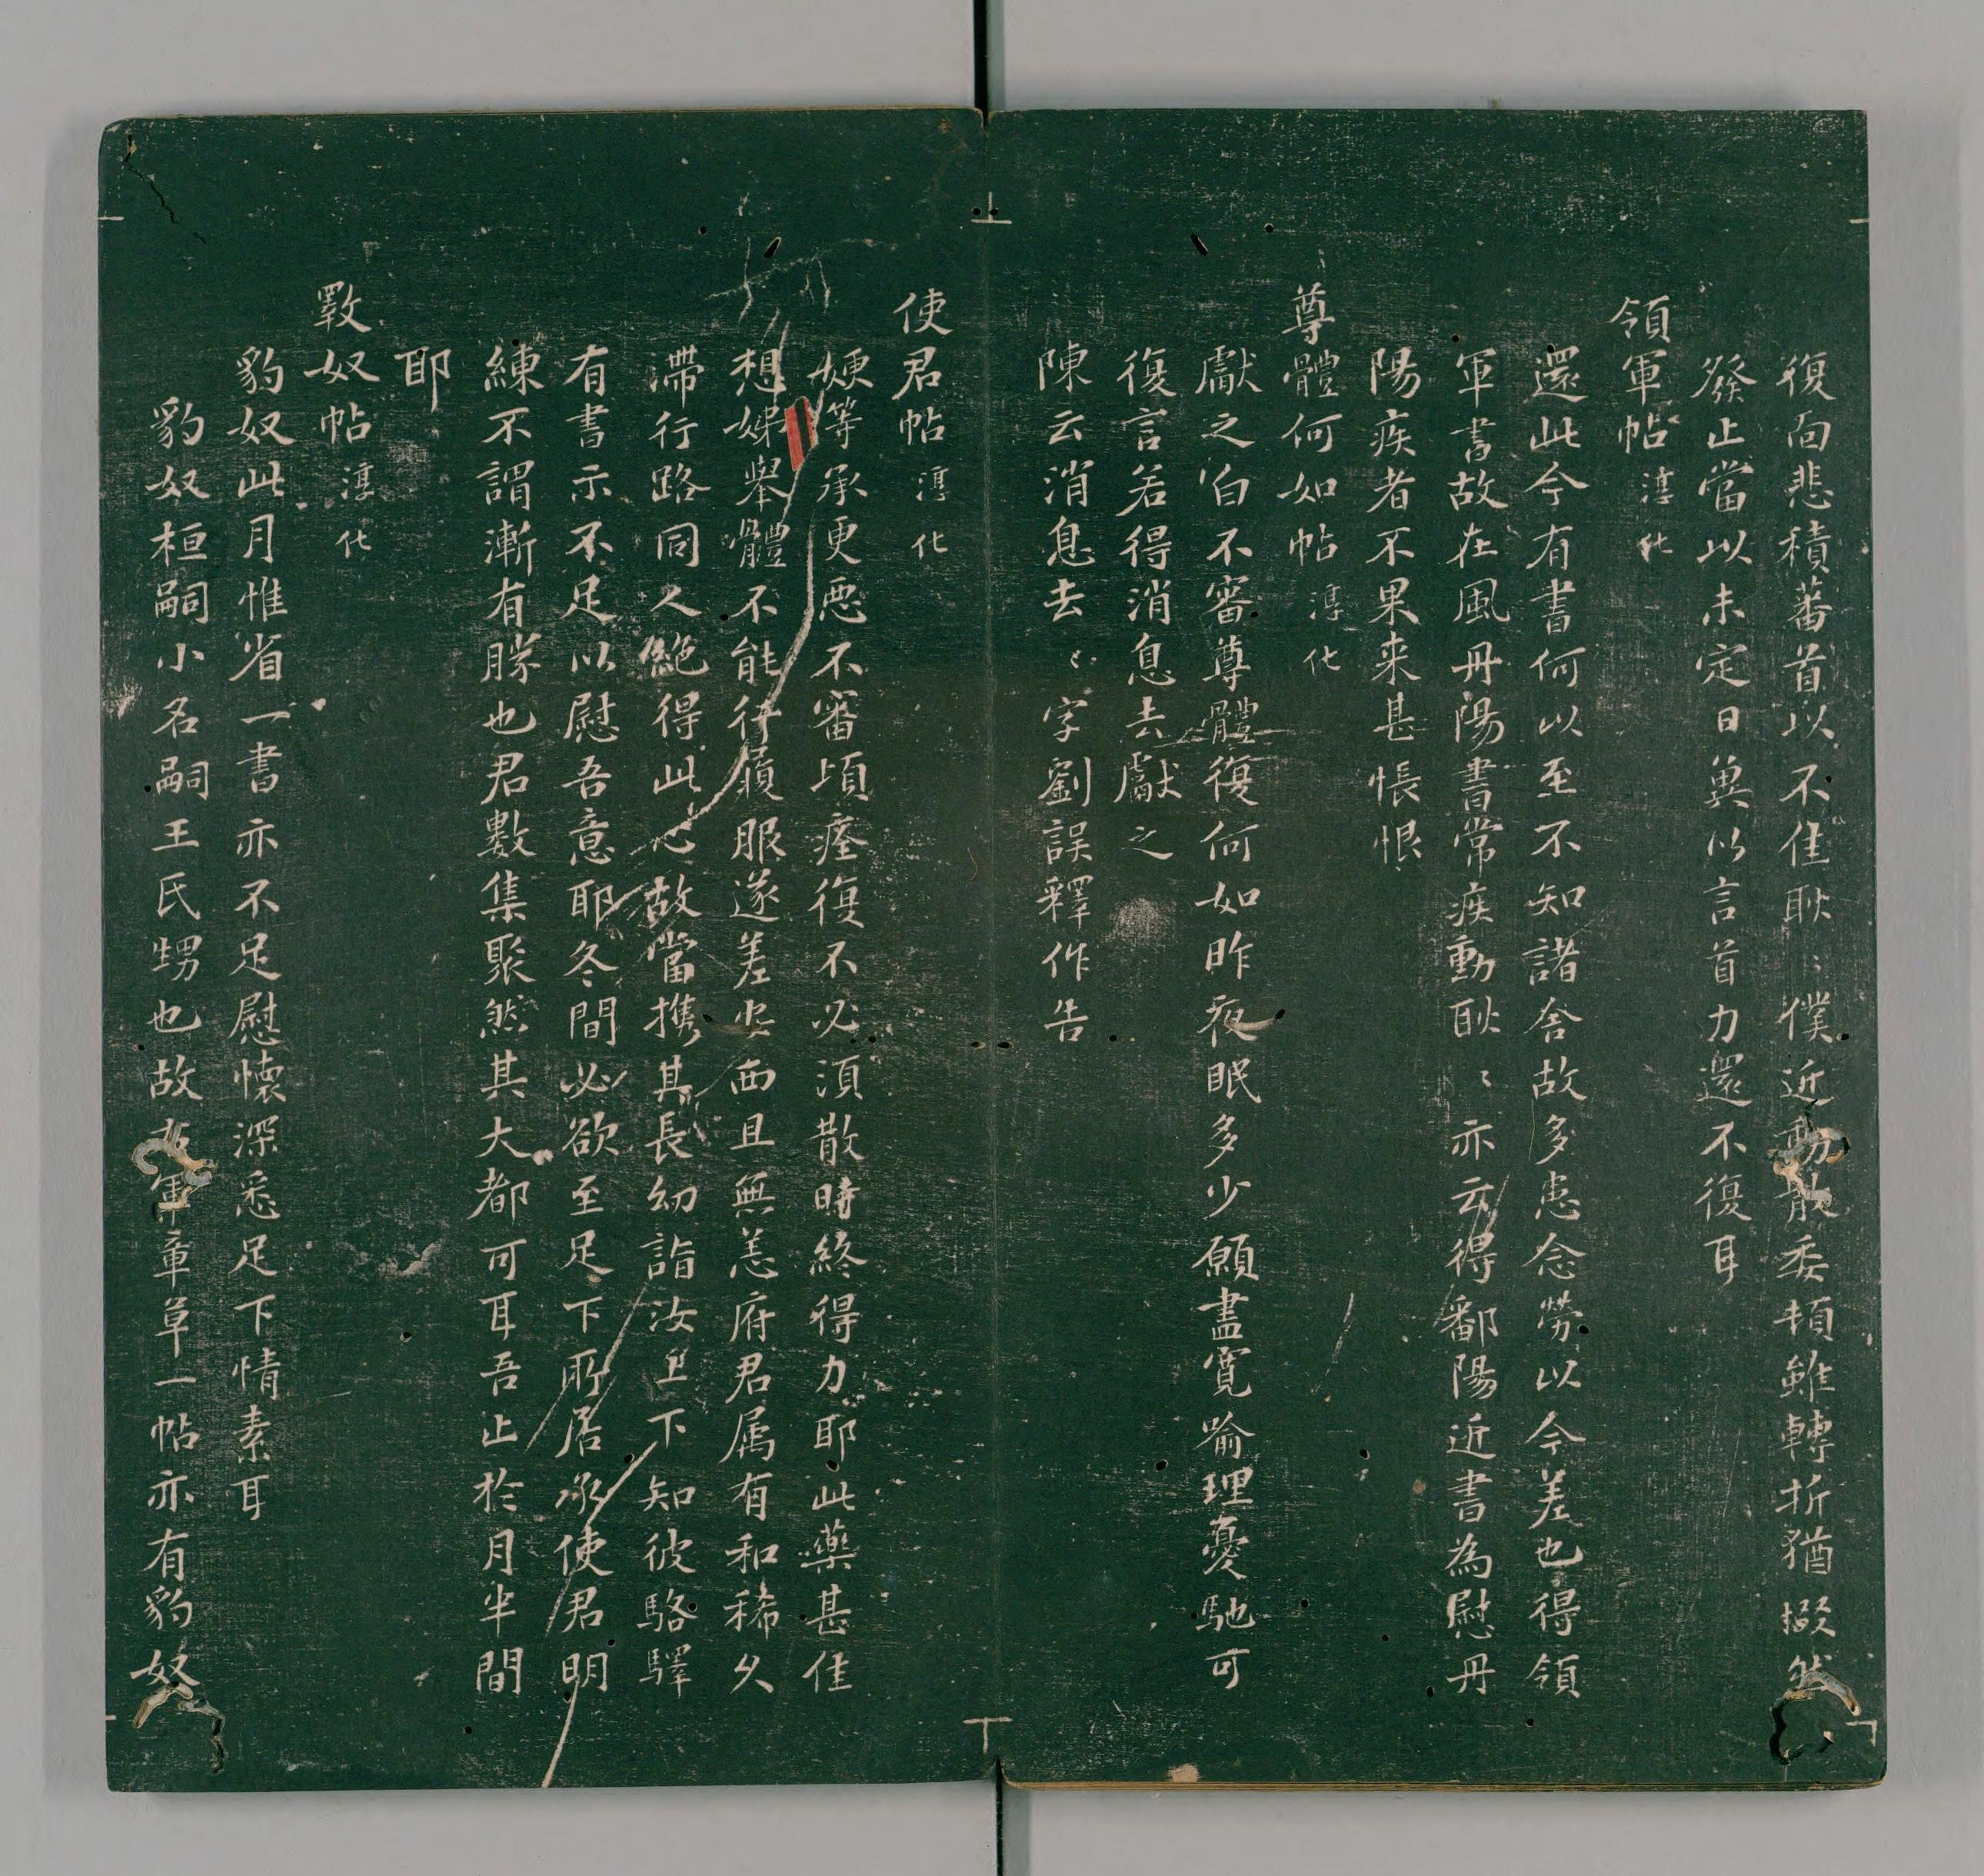 復面悲積蕃首以不佳耿〻僕近動散委頓雖轉折猶惙然
發止當以未定日冀以言首力還不復耳
領軍帖 淳化
還此今有書何以至不知諸舍故多患念勞以今差也得領
軍書故在風丹陽書常疾動耿〻亦云得鄱陽近書為慰丹
陽疾者不果来甚悵恨
尊體何如帖 淳化
獻之白不審尊體復何如昨夜眠多少願盡寬喻理憂馳可
復言若得消息去獻之
陳云消息去〻字劉誤釋作告
使君帖 淳化
㛐等承更惡不審頃痊復不必湏散時終得力耶此藥甚佳
想娣舉體不能行履服遂差安西且無恙府君属有和稀久
滯行路同人絶得此心故當携其長幼詣汝上下知彼駱驛
有書示不足以慰吾意耶冬間必欲至足下所居承使君明
練不謂漸有勝也君數集聚然其大都可耳吾止於月半間
耶
豹奴帖 淳化
豹奴此月惟省一書亦不足慰懷深悉足下情素耳
豹奴桓嗣小名嗣王氏甥也故右軍章草一帖亦有豹奴